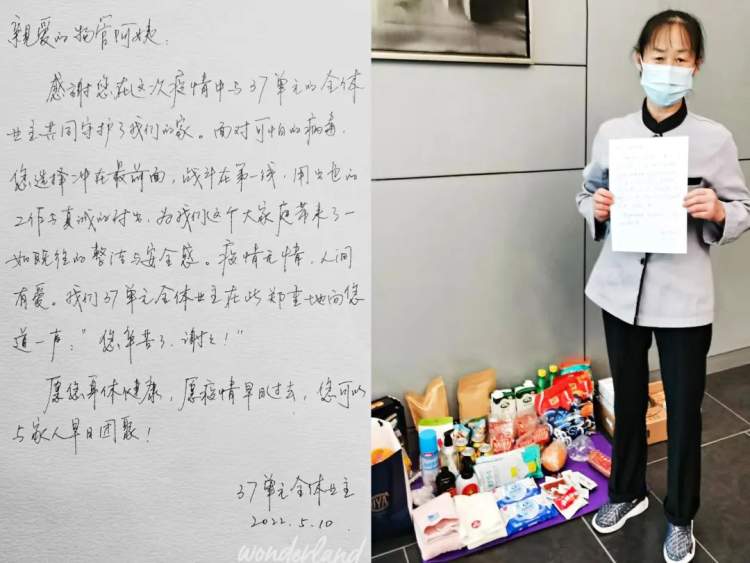 亲爱的物管阿姨.
感谢您在这次疫情中与37单元的全体
业主共同守护了我们的家。面对可怕的病毒.
您选择冲在最前面,战斗在第一线,用出色的
工作与真诚的付出,为我们这个大家庭带来了一
如既往的整洁与安全感。疫情无情,人间
有爱。我们37单元全体业主在此郑重地向您
道一声:"您辛苦了.谢谢!"
愿您身体健康,愿疫情早日过去,您可以
与家人早日团聚!
37单元全体业主
2022.5.10.
wonderland